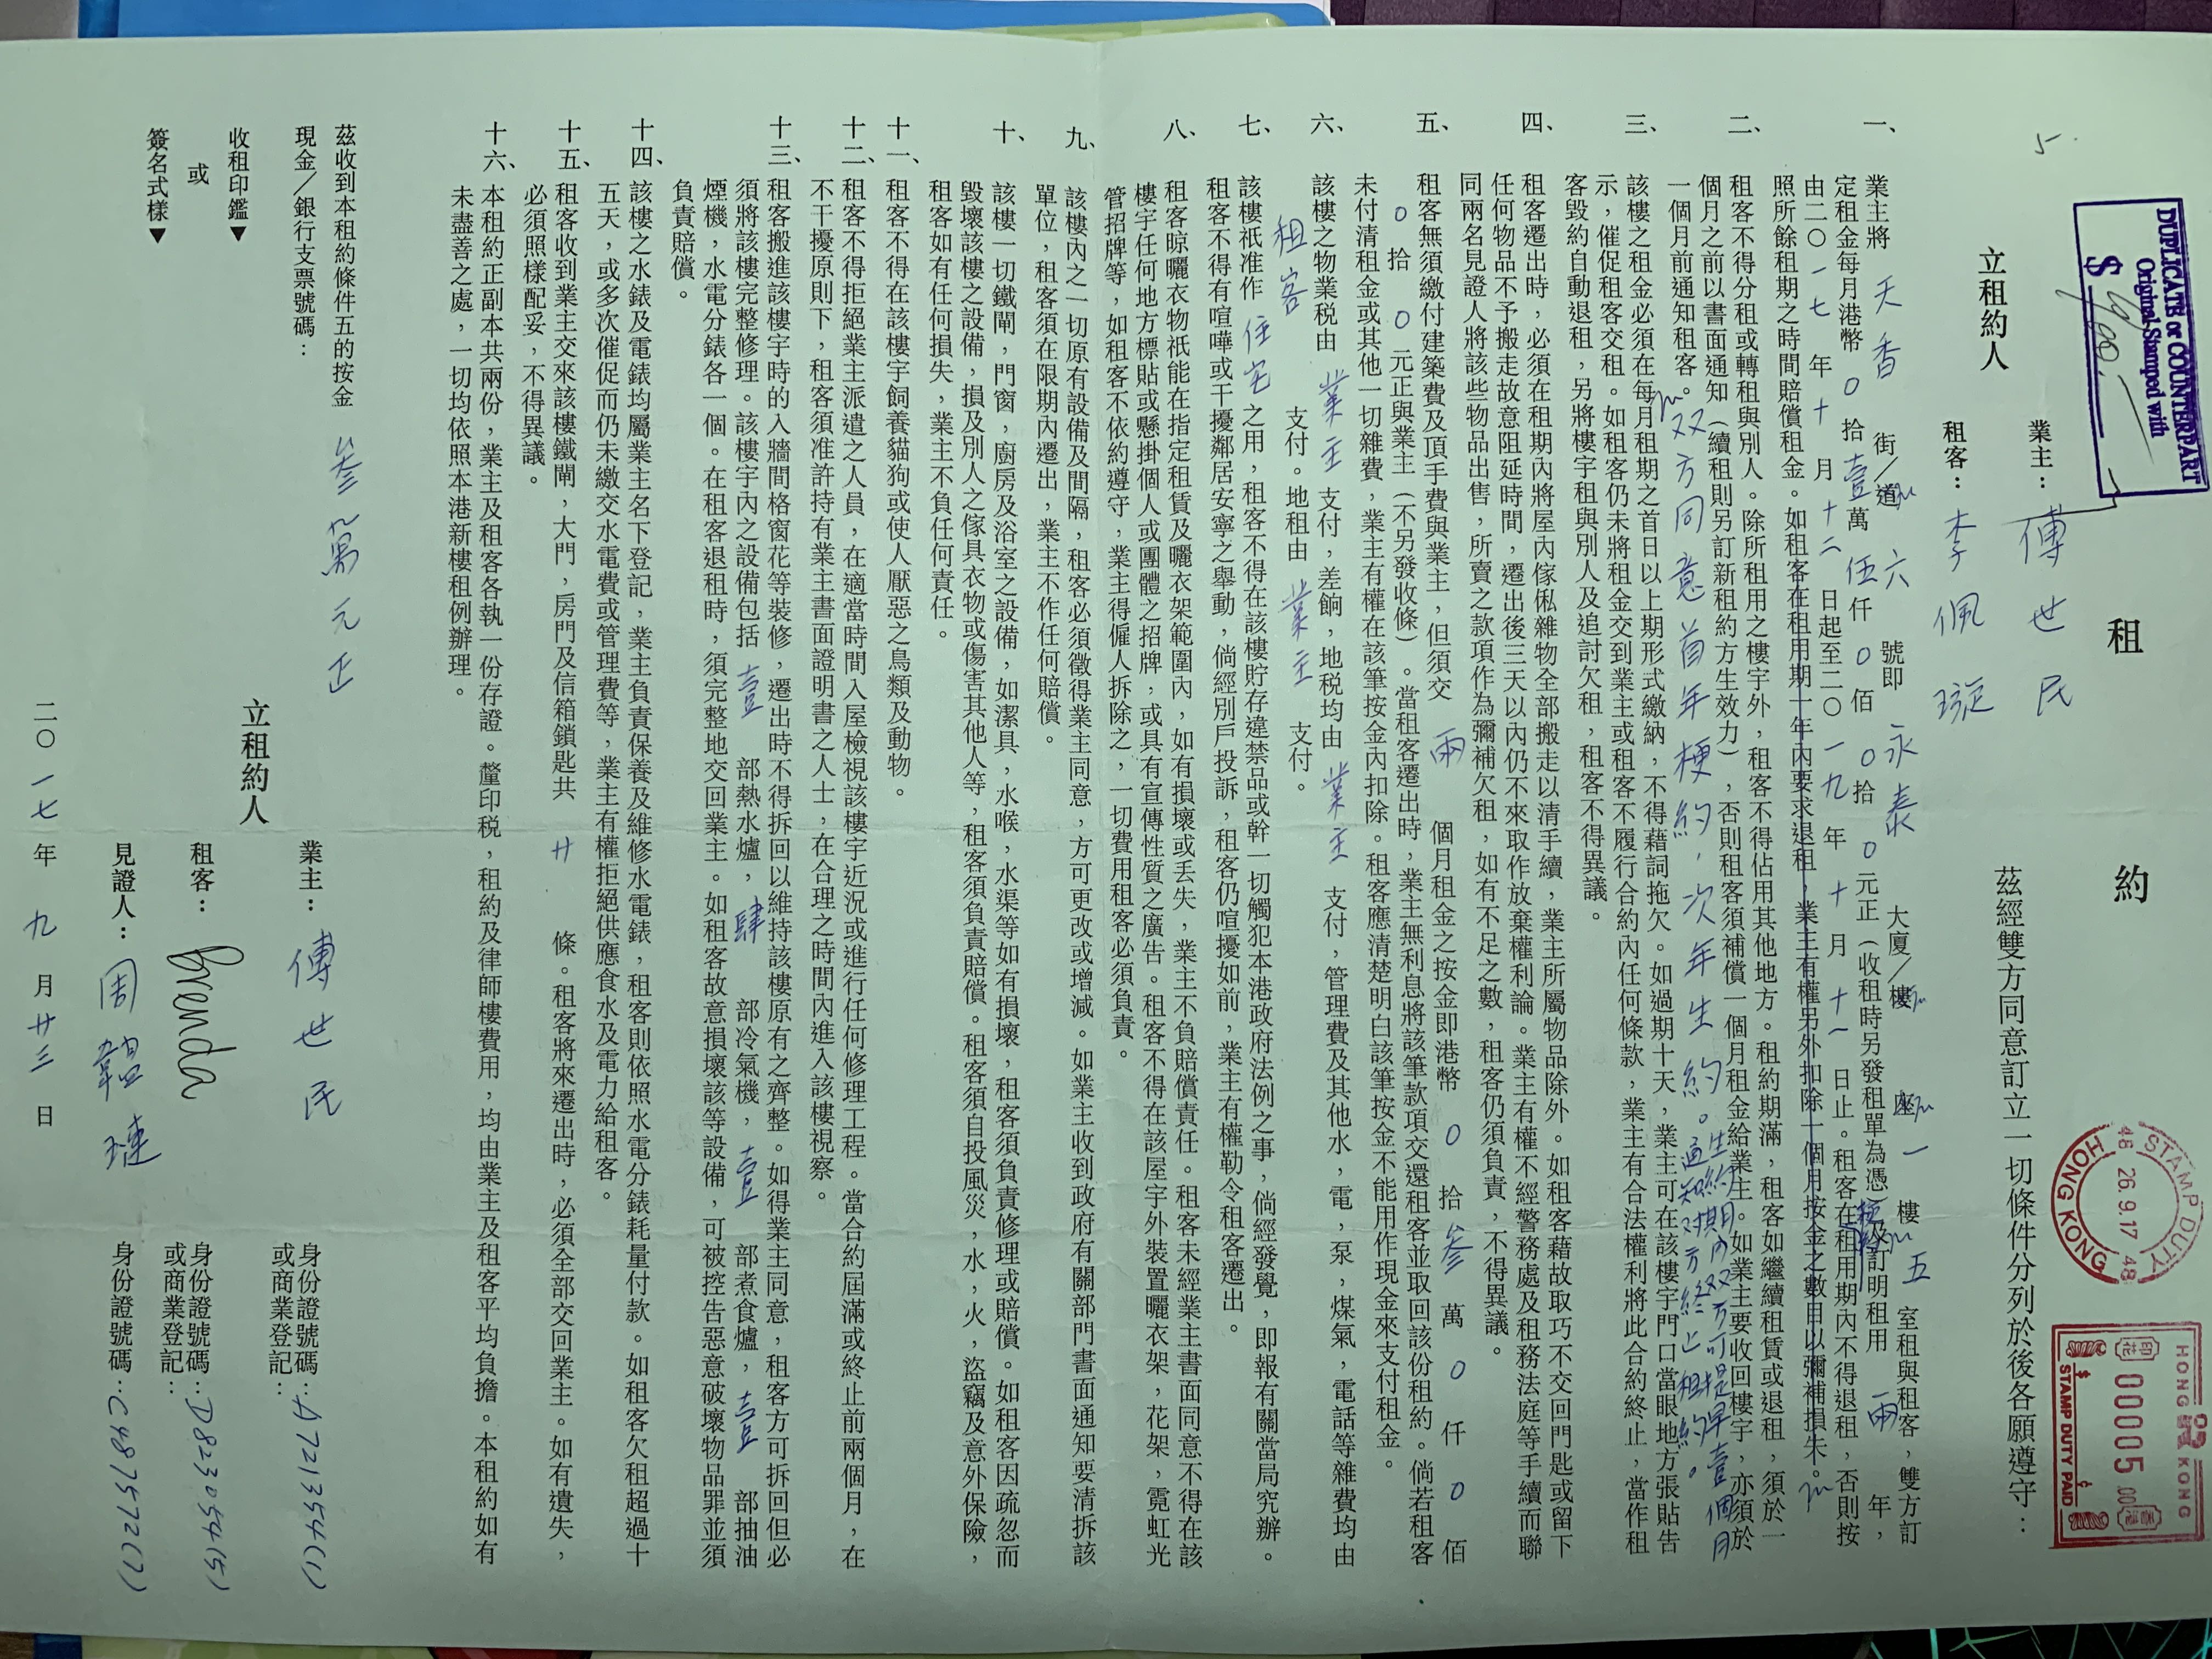 5
DUPLICATE or COUNTERPART
Original Stamped with
$ 900.-
租約
立租約人
業主：傅世民
租客：李佩璇
茲經雙方同意訂立一切條件分列於後各願遵守：
STAMP DUTY
26.9.17
HONG KONG
HONG KONG
00005
STAMP DUTY PAID
一、業主將 天香 街／道 六 號即 永泰 大廈／樓 座 一 樓 五 室租與租客，雙方訂
定租金每月港幣 0 拾 壹 萬 伍 仟 0 佰 0 拾 0 元正（收租時另發租單為憑）及訂明租用 兩 年，
由二〇一七年十月十二日起至二〇一九年十月十一日止。租客在租用期內不得退租，否則按
照所餘租期之時間賠償租金。如租客在租用期一年內要求退租，業主有權另外扣除一個月按金之數目以彌補損失。
二、租客不得分租或轉租與別人。除所租用之樓宇外，租客不得佔用其他地方。租約期滿，租客如繼續租賃或退租，須於一
個月之前以書面通知（續租則另訂新租約方生效力），否則租客須補償一個月租金給業主。如業主要收回樓宇，亦須於
一個月前通知租客。双方同意首年梗約，次年生約。生約期內双方可提早壹個月
通知對方終止租約。
三、該樓之租金必須在每月租期之首日以上期形式繳納，不得藉詞拖欠。如過期十天，業主可在該樓宇門口當眼地方張貼告
示，催促租客交租。如租客仍未將租金交到業主或租客不履行合約內任何條款，業主有合法權利將此合約終止，當作租
客毀約自動退租，另將樓宇租與別人及追討欠租，租客不得異議。
四、租客遷出時，必須在租期內將屋內傢俬雜物全部搬走以清手續，業主所屬物品除外。如租客藉故取巧不交回門匙或留下
任何物品不予搬走故意阻延時間，遷出後三天以內仍不來取作放棄權利論。業主有權不經警務處及租務法庭等手續而聯
同兩名見證人將該些物品出售，所賣之款項作為彌補欠租，如有不足之數，租客仍須負責，不得異議。
五、租客無須繳付建築費及頂手費與業主，但須交 兩 個月租金之按金即港幣 0 拾 叁 萬 0 仟 0 佰
0 拾 0 元正與業主（不另發收條）。當租客遷出時，業主無利息將該筆款項交還租客並取回該份租約。倘若租客
未付清租金或其他一切雜費，業主有權在該筆按金內扣除。租客應清楚明白該筆按金不能用作現金來支付租金。
六、該樓之物業稅由 業主 支付，差餉，地稅均由 業主 支付，管理費及其他水，電，泵，煤氣，電話等雜費均由
租客 支付。地租由 業主 支付。
七、該樓祇准作 住宅 之用，租客不得在該樓貯存違禁品或幹一切觸犯本港政府法例之事，倘經發覺，即報有關當局究辦。
租客不得有喧嘩或干擾鄰居安寧之舉動，倘經別戶投訴，租客仍喧擾如前，業主有權勒令租客遷出。
八、租客晾曬衣物祇能在指定租賃及曬衣架範圍內，如有損壞或丟失，業主不負賠償責任。租客未經業主書面同意不得在該
樓宇任何地方標貼或懸掛個人或團體之招牌，或具有宣傳性質之廣告。租客不得在該屋宇外裝置曬衣架，花架，霓虹光
管招牌等，如租客不依約遵守，業主得僱人拆除之，一切費用租客必須負責。
九、該樓內之一切原有設備及間隔，租客必須徵得業主同意，方可更改或增減。如業主收到政府有關部門書面通知要清拆該
單位，租客須在限期內遷出，業主不作任何賠償。
十、該樓一切鐵閘，門窗，廚房及浴室之設備，如潔具，水喉，水渠等如有損壞，租客須負責修理或賠償。如租客因疏忽而
毀壞該樓之設備，損及別人之傢具衣物或傷害其他人等，租客須負責賠償。租客須自投風災，水，火，盜竊及意外保險，
租客如有任何損失，業主不負任何責任。
十一、租客不得在該樓宇飼養貓狗或使人厭惡之鳥類及動物。
十二、租客不得拒絕業主派遣之人員，在適當時間入屋檢視該樓宇近況或進行任何修理工程。當合約屆滿或終止前兩個月，在
不干擾原則下，租客須准許持有業主書面證明書之人士，在合理之時間內進入該樓視察。
十三、租客搬進該樓宇時的入牆間格窗花等裝修，遷出時不得拆回以維持該樓原有之齊整。如得業主同意，租客方可拆回但必
須將該樓完整修理。該樓宇內之設備包括 壹 部熱水爐，肆 部冷氣機，壹 部煮食爐，壹 部抽油
煙機，水電分錶各一個。在租客退租時，須完整地交回業主。如租客故意損壞該等設備，可被控告惡意破壞物品罪並須
負責賠償。
十四、該樓之水錶及電錶均屬業主名下登記，業主負責保養及維修水電錶，租客則依照水電分錶耗量付款。如租客欠租超過十
五天，或多次催促而仍未繳交水電費或管理費等，業主有權拒絕供應食水及電力給租客。
十五、租客收到業主交來該樓鐵閘，大門，房門及信箱鎖匙共 廿 條。租客將來遷出時，必須全部交回業主。如有遺失，
必須照樣配妥，不得異議。
十六、本租約正副本共兩份，業主及租客各執一份存證。釐印稅，租約及律師樓費用，均由業主及租客平均負擔。本租約如有
未盡善之處，一切均依照本港新樓租例辦理。
茲收到本租約條件五的按金 叁萬元正
現金／銀行支票號碼：
收租印鑑▼
或
簽名式樣▼
立租約人
業主：傅世民
身份證號碼：A721354(1)
或商業登記：
租客：Brenda
身份證號碼：D823054(5)
或商業登記：
見證人：周韞璉
身份證號碼：C487572(7)
二〇一七年 九 月 廿三 日